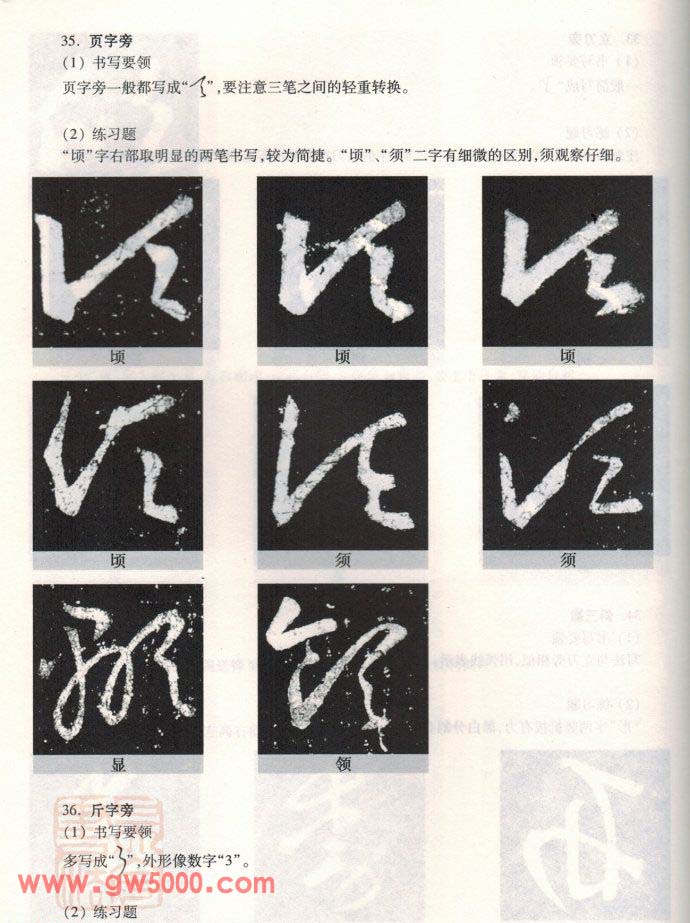 35. 页字旁
(1) 书写要领
页字旁一般都写成“”,要注意三笔之间的轻重转换。
(2) 练习题
“顷”字右部取明显的两笔书写,较为简捷。“顷”、“须”二字有细微的区别,须观察仔细。
顷 顷 顷
顷 须 须
显 领
36. 斤字旁
(1) 书写要领
多写成“”,外形像数字“3”。
www.gw5000.com
(2) 练习题